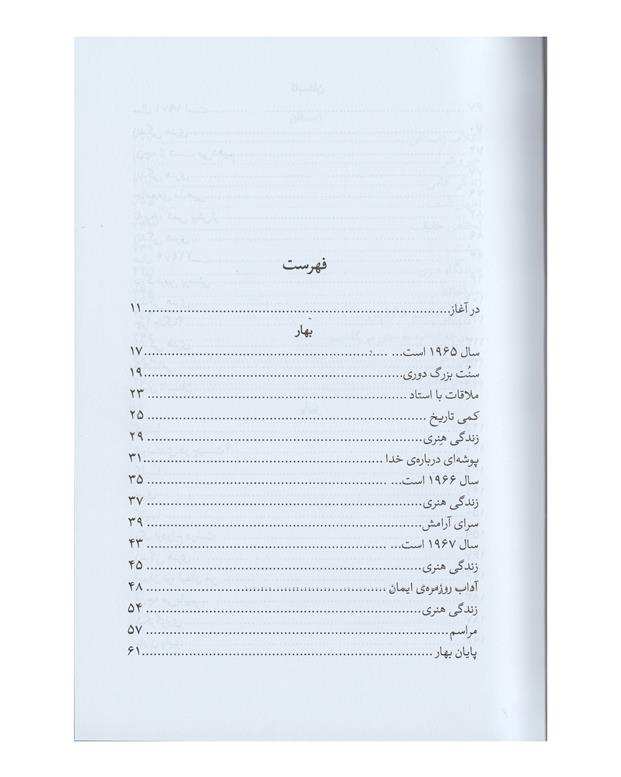 فهرست
در آغاز ........ ۱۱
بهار
سال ۱۹۶۵ است... ........ ۱۷
سنُت بزرگ دوری ........ ۱۹
ملاقات با استاد ........ ۲۳
کمی تاریخ ........ ۲۵
زندگی هنری ........ ۲۹
پوشه‌ای درباره‌ی خدا ........ ۳۱
سال ۱۹۶۶ است... ........ ۳۵
زندگی هنری ........ ۳۷
سرای آرامش ........ ۳۹
سال ۱۹۶۷ است... ........ ۴۳
زندگی هنری ........ ۴۵
آداب روزمره‌ی ایمان ........ ۴۸
زندگی هنری ........ ۵۴
مراسم ........ ۵۷
پایان بهار ........ ۶۱